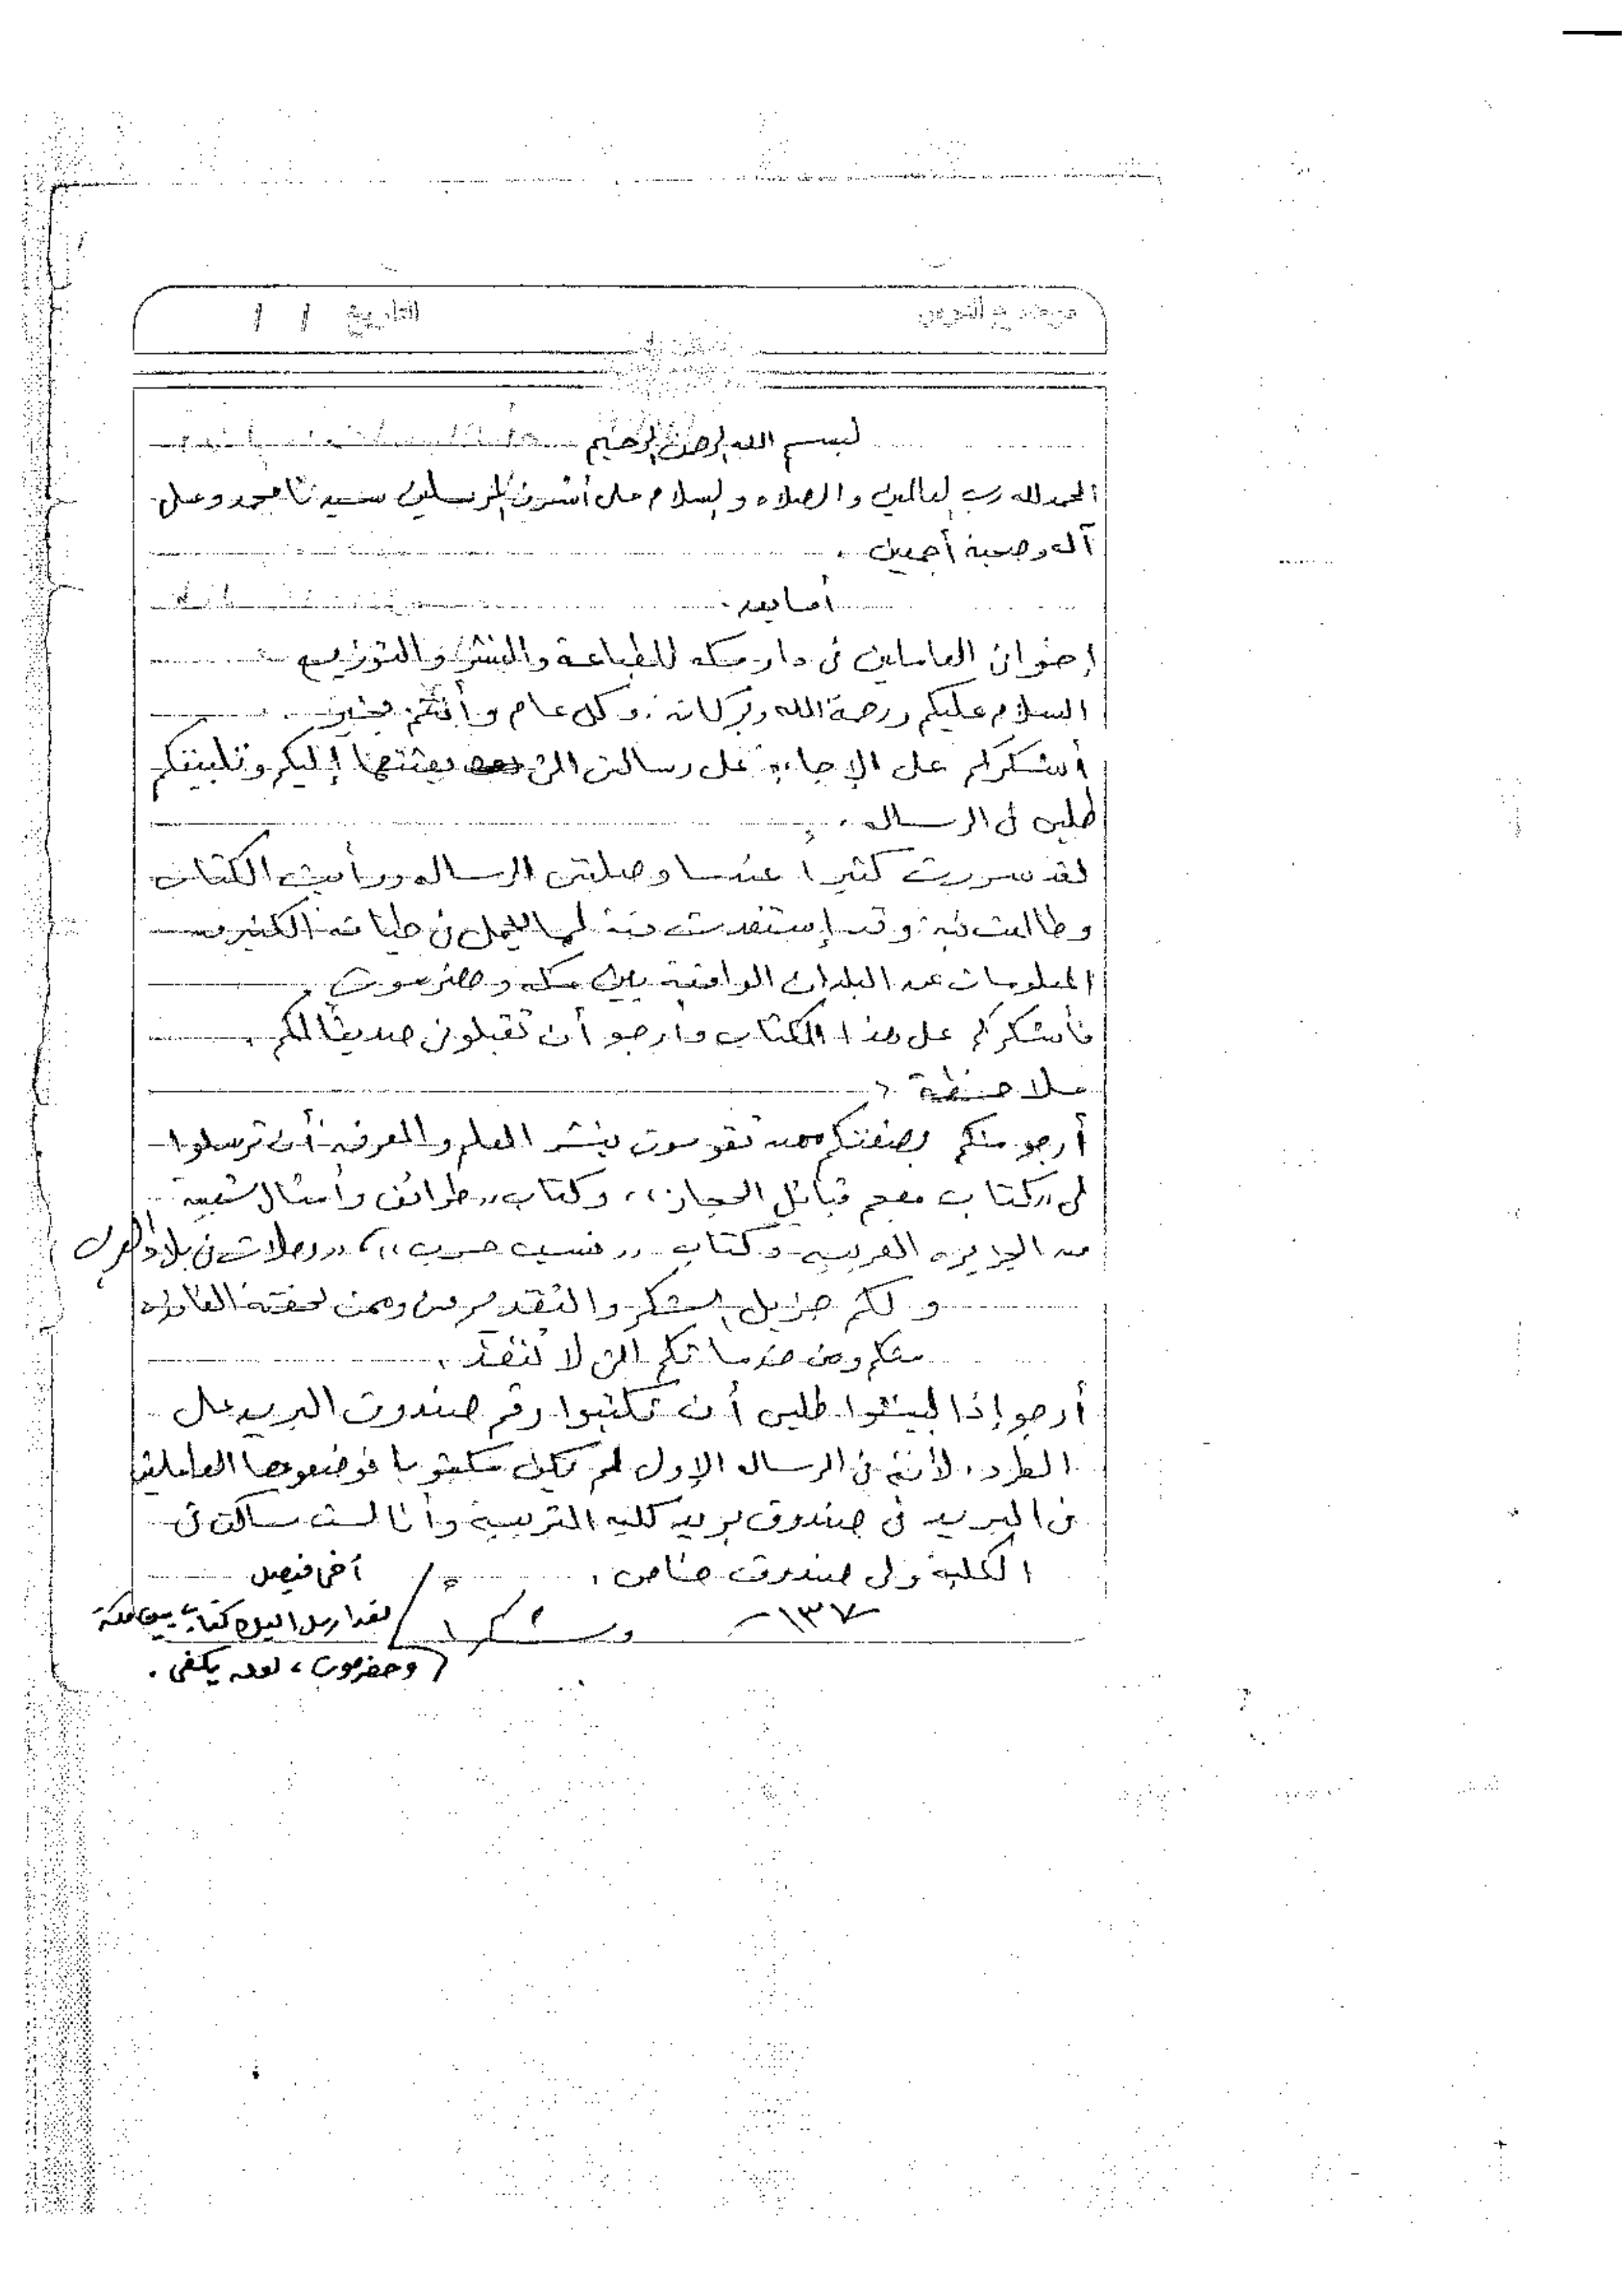 التاريخ / /
بسم الله الرحمن الرحيم
الحمد لله رب العالمين والصلاه والسلام على أشرف المرسلين سيدنا محمد وعلى
آله وصحبة أجمعين .
أما بعد .
إخوانى العاملين فى دار مكه للطباعة والنشر والتوزيع
السلام عليكم ورحمة الله وبركاته . وكل عام وأنتم بخير
أشكركم على الإجابة على رسالتى التى بعثتها إليكم وتلبيتكم
طلبى فى الرساله .
لقد سررت كثيرا عندما وصلتنى الرساله ورأيت الكتاب
وطالعت فية وقد إستفدت منة لما يحمل فى طياته الكثير من
المعلومات عن البلدان الواقعة بين مكه وحضرموت .
فأشكركم على هذا الكتاب وأرجو أن تقبلونى صديقا لكم .
ملاحظة :
أرجو منكم بصفتكم تقومون بنشر العلم والمعرفه أن ترسلوا
لى ,, كتاب معجم قبائل الحجاز ،، وكتاب ,, طرائف وأمثال شعبية
من الجزيره العربيه وكتاب ,, نسب حرب ،، ,, رحلات فى بلاد العرب
ولكم جزيل الشكر والتقدير منى ومن لحقته الفائده
منكم ومن خدماتكم التى لا تنفذ .
أرجو إذا لبيتوا طلبى أن تكتبوا رقم صندوق البريد على
الطرد . لأنة فى الرساله الإولى لم يكن مكتوبا فوضعوها العاملين
فى البريد فى صندوق بريد كليه التربية وأنا لست ساكن فى
الكلية ولى صندوق خاص .
ـ ١٣٧ ـ
وشكرا
أخى فيصل
لقد أرسل اليك كتاب بين مكة
وحضرموت ، لعله يكفى .